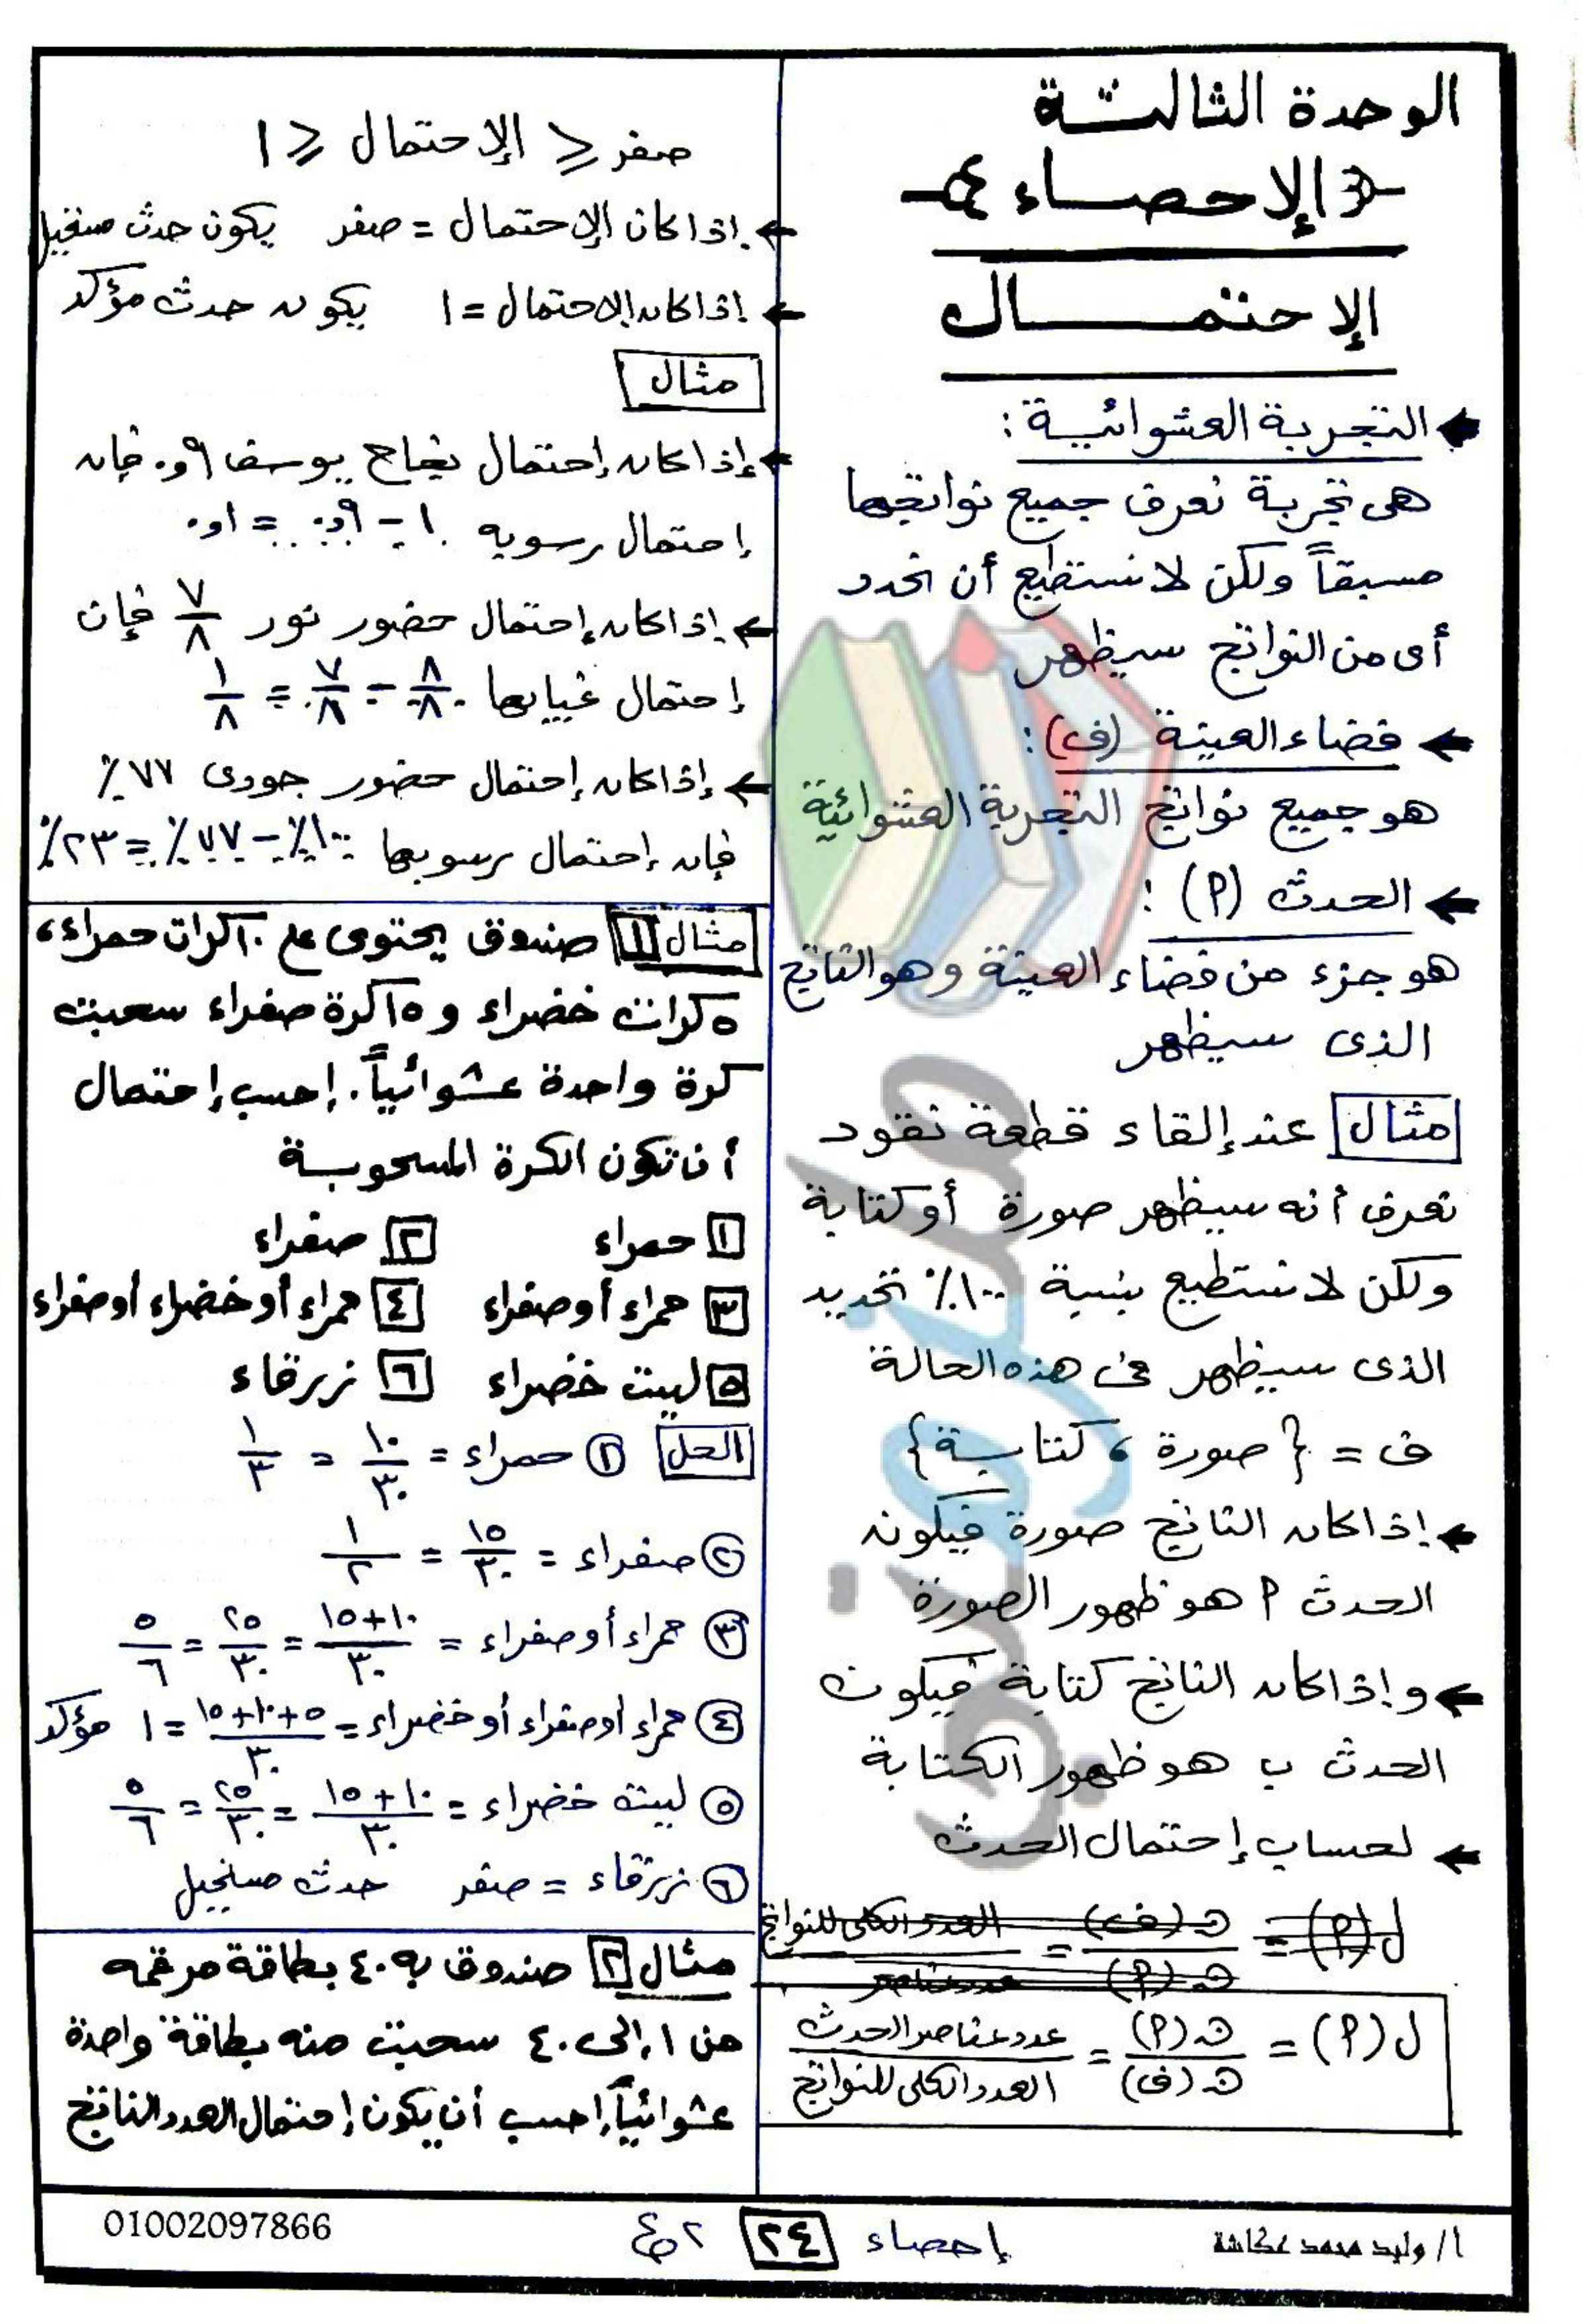 الوحدة الثالثة
الإحصاء
الإحتمال
التجربة العشوائية :
هى تجربة نعرف جميع نواتجها
مسبقاً ولكن لا نستطيع أن نحدد
أى من النواتج سيظهر
فضاء العينة (ف) :
هو جميع نواتج التجربة العشوائية
الحدث (P) :
هو جزء من فضاء العينة وهو الناتج
الذى سيظهر
مثال عند إلقاء قطعة نقود
نعرف أنه سيظهر صورة أو كتابة
ولكن لا نستطيع بنسبة ١٠٠٪ تحديد
الذى سيظهر فى هذه الحالة
ف = { صورة ، كتابة }
إذا كان الناتج صورة فيكون
الحدث P هو ظهور الصورة
و إذا كان الناتج كتابة فيكون
الحدث ب هو ظهور الكتابة
لحساب إحتمال الحدث
ل (P) = ن (ف) / ن (P) = العدد الكلى للنواتج / عدد عناصر
ل (P) = ن (P) / ن (ف) = عدد عناصر الحدث / العدد الكلى للنواتج
صفر ≤ الإحتمال ≤ ١
إذا كان الإحتمال = صفر يكون حدث مستحيل
إذا كان الإحتمال = ١ يكون حدث مؤكد
مثال
إذا كان إحتمال نجاح يوسف ٠٫٩ فإن
إحتمال رسوبه ١ - ٠٫٩ = ٠٫١
إذا كان إحتمال حضور نور ٧/٨ فإن
إحتمال غيابها ٨/٨ - ٧/٨ = ١/٨
إذا كان إحتمال حضور جودى ٧٧٪
فإن إحتمال رسوبها ١٠٠٪ - ٧٧٪ = ٢٣٪
مثال ١ صندوق يحتوى على ١٠ كرات حمراء ،
٥ كرات خضراء و ١٥ كرة صفراء سحبت
كرة واحدة عشوائياً . إحسب إحتمال
أن تكون الكرة المسحوبة
١ حمراء ٢ صفراء
٣ حمراء أو صفراء ٤ حمراء أو خضراء أو صفراء
٥ ليست خضراء ٦ زرقاء
الحل ١ حمراء = ١٠/٣٠ = ١/٣
٢ صفراء = ١٥/٣٠ = ١/٢
٣ حمراء أو صفراء = ١٠+١٥/٣٠ = ٢٥/٣٠ = ٥/٦
٤ حمراء أو صفراء أو خضراء = ٥+١٠+١٥/٣٠ = ١ مؤكد
٥ ليست خضراء = ١٠+١٥/٣٠ = ٢٥/٣٠ = ٥/٦
٦ زرقاء = صفر حدث مستحيل
مثال ٢ صندوق به ٤٠ بطاقة مرقمه
من ١ إلى ٤٠ سحبت منه بطاقة واحدة
عشوائياً إحسب أن يكون إحتمال العدد الناتج
أ/ وليد محمد عكاشة
إحصاء ٢٤
01002097866